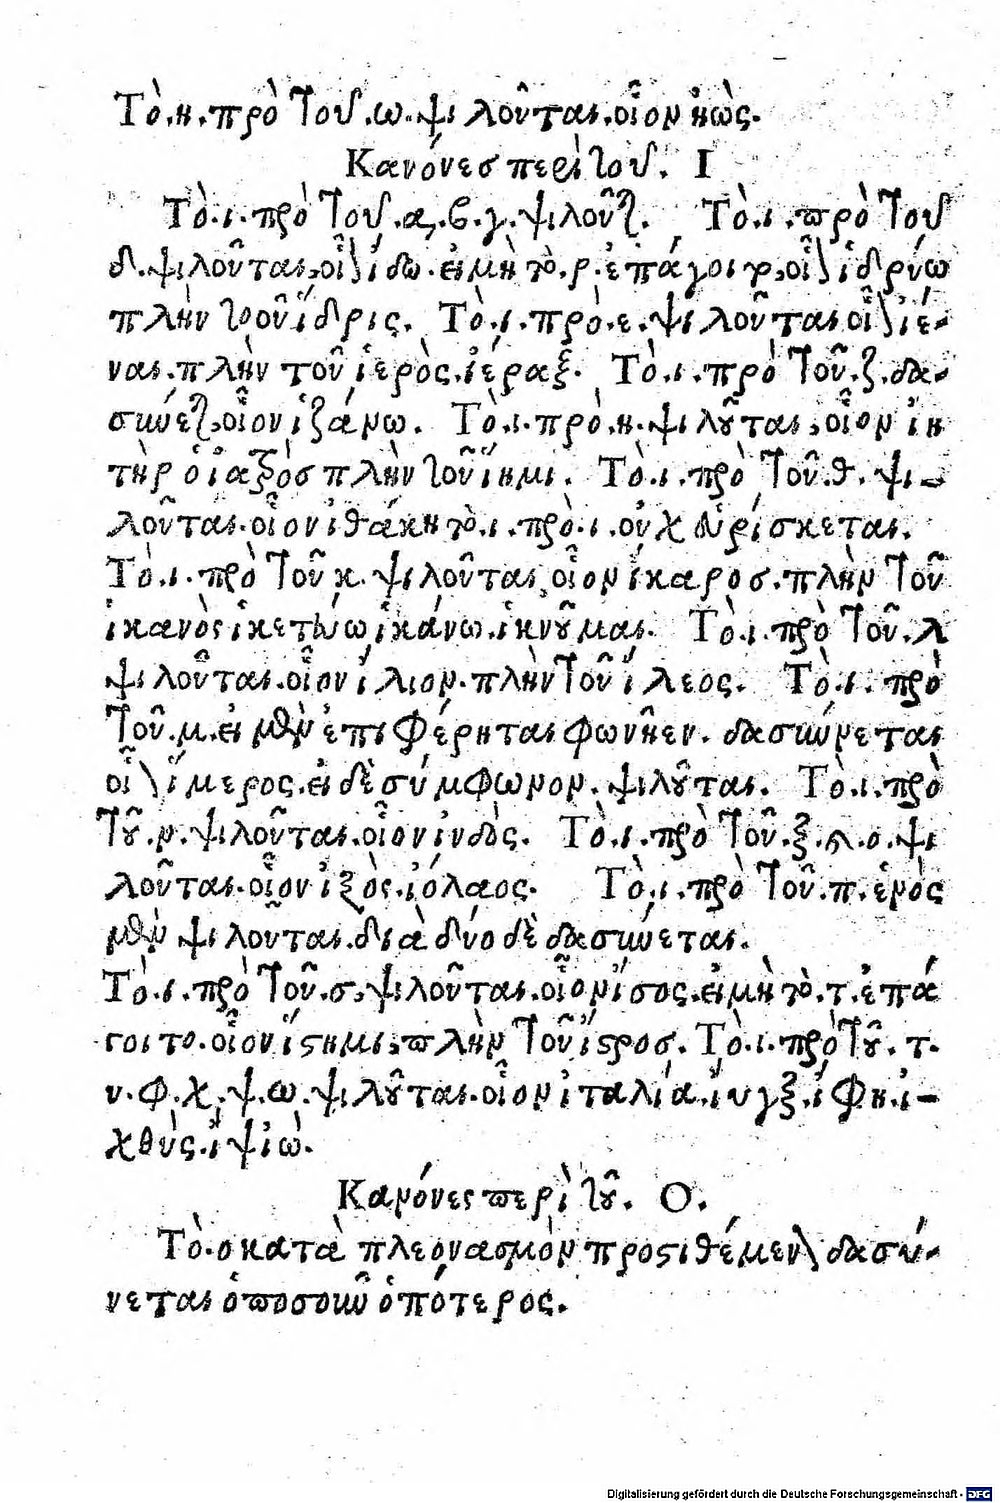 Τὸ.η.πρὸ τοῦ.ω.ψιλοῦται.οἷον ἠώς.
Κανόνεσ περὶ τοῦ. Ι
Τὸ.ι.πρὸ τοῦ.α.β.γ.ψιλοῦται. Τὸ.ι.πρὸ τοῦ
δ.ψιλοῦται,οἷον ἴδω.εἰ μὴ τὸ.ρ.ἐπάγοιτο,οἷον ἱδρύω
πλὴν τοῦ ἴδρις. Τὸ.ι.πρὸ.ε.ψιλοῦται οἷον ἰέ-
ναι.πλὴν τοῦ ἱερὸς.ἱέραξ. Τὸ.ι.πρὸ τοῦ.ζ.δα-
σύνεται,οἷον ἱζάνω. Τὸ.ι.πρὸ.η.ψιλοῦται,οἷον ἰη
τὴρ ὁ ἰατρὸσ πλὴν τοῦ ἵημι. Τὸ.ι.πρὸ τοῦ.θ.ψι-
λοῦται.οἷον ἰθάκη τὸ.ι.πρὸ.ι.οὐχ εὑρίσκεται.
Τὸ.ι.πρὸ τοῦ κ.ψιλοῦται οἷον ἴκαροσ.πλὴν τοῦ
ἱκανὸς ἱκετεύω ἱκάνω.ἱκνοῦμαι. Τὸ.ι.πρὸ τοῦ.λ
ψιλοῦται.οἷον ἴλιον.πλὴν τοῦ ἵλεος. Τὸ.ι.πρὸ
τοῦ.μ.εἰ μὲν ἐπιφέρηται φωνῆεν.δασύνεται
οἷον ἵμερος.εἰ δὲ σύμφωνον.ψιλοῦται. Τὸ.ι.πρὸ
τοῦ.ν.ψιλοῦται.οἷον ἰνδὸς. Τὸ.ι.πρὸ τοῦ.ξ.καὶ.ο.ψι
λοῦται.οἷον ἰξὸς.ἰόλαος. Τὸ.ι.πρὸ τοῦ.π.ἑνὸς
μὲν ψιλοῦται.διὰ δύο δὲ δασύνεται.
Τὸ.ι.πρὸ τοῦ.σ,ψιλοῦται.οἷον ἴσος.εἰ μὴ τὸ.τ.ἐπά
γοιτο.οἷον ἵστημι,πλὴν τοῦ ἴστροσ. Τὸ.ι.πρὸ τοῦ.τ.
υ.φ.χ.ψ.ω.ψιλοῦται.οἷον ἰταλία.ἴυγξ.ἶφι.ἰ-
χθὺς.ἰψ.ἰὼ.
Κανόνες περὶ τοῦ. Ο.
Τὸ.ο κατὰ πλεονασμὸν προστιθέμενον δασύ-
νεται ὁποσοῦν ὁπότερος.
Digitalisierung gefördert durch die Deutsche Forschungsgemeinschaft - DFG